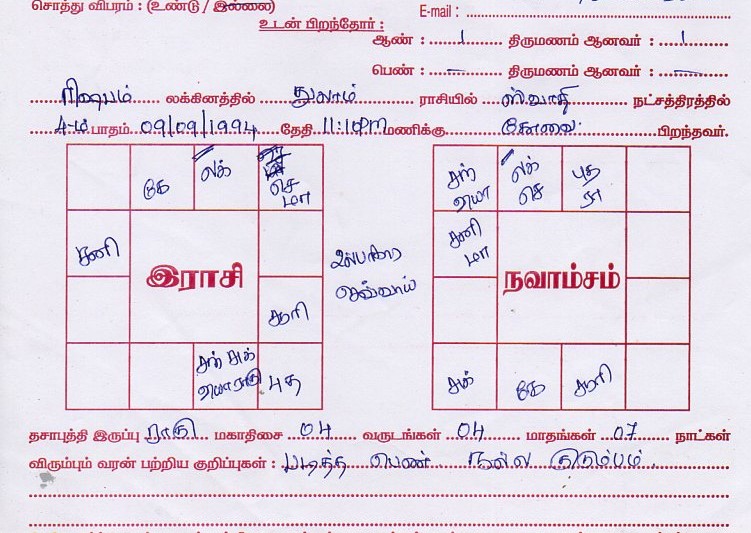 சொத்து விபரம் : (உண்டு / இல்லை)
E-mail :
உடன் பிறந்தோர் :
ஆண் : 1 திருமணம் ஆனவர் : 1
பெண் : – திருமணம் ஆனவர் : –
ரிஷபம் லக்கினத்தில் துலாம் ராசியில் ஸ்வாதி நட்சத்திரத்தில்
4-ம் பாதம் 09/09/1994 தேதி 11:10pm மணிக்கு கோவை பிறந்தவர்.
கே லக் செ மா
சனி
இராசி
சூரி
சந் சுக் ராகு புத
2ல்
செவ்வாய்
சந் லக் செ புத ரா
சனி மா
நவாம்சம்
சுக் கே சூரி
தசாபுத்தி இருப்பு ராகு மகாதிசை 04 வருடங்கள் 04 மாதங்கள் 07 நாட்கள்
விரும்பும் வரன் பற்றிய குறிப்புகள் : படித்த பெண். நல்ல குடும்பம்.